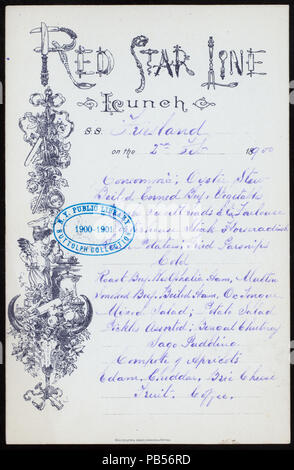 RED STAR LINE
Lunch
S.S. Friesland
on the 2nd Feb 1900
Consommé; Oyster Stew
Boiled Corned Beef, Vegetables
Sweetbreads à la Toulouse
Steak Horseradish
Potatoes, Fried Parsnips
N.Y. PUBLIC LIBRARY
1900-1901
BUTTOLPH COLLECTION
Cold
Roast Beef, Westphalia Ham, Mutton
Beef, Boiled Ham, Ox Tongue
Mixed Salad; Potato Salad
Pickles Assorted; Bengal Chutney
Sago Pudding
Compote of Apricots
Edam, Cheddar, Brie Cheese
Fruit. Coffee.
alamy stock photo